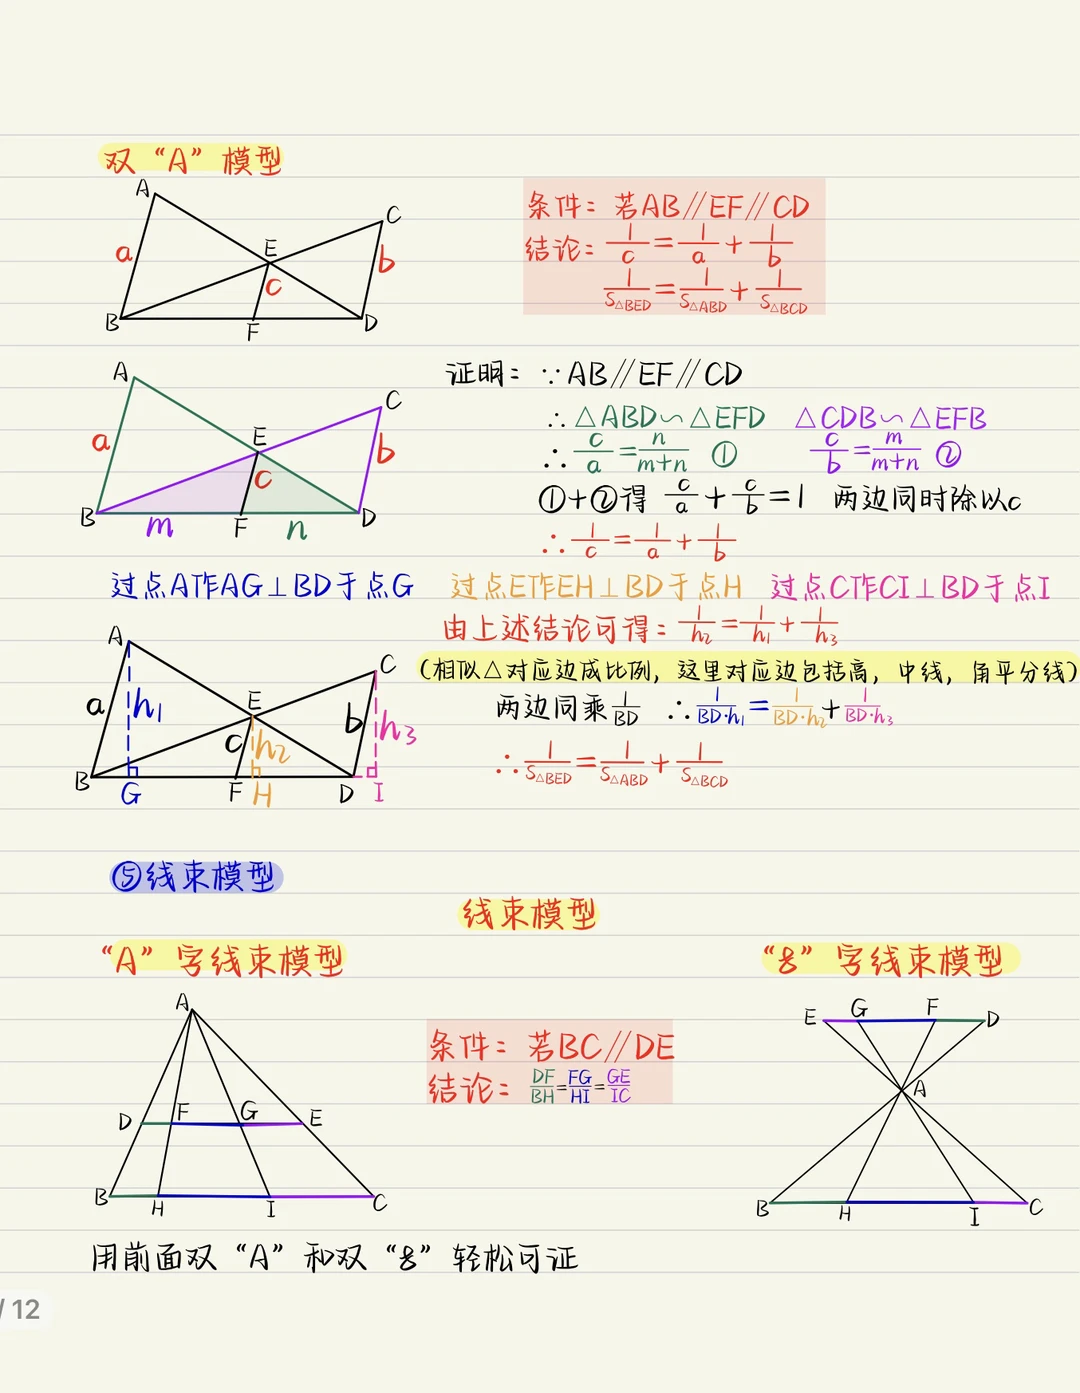 双“A”模型
A
C
E
a
b
c
B
F
D
条件：若AB∥EF∥CD
结论：1/c=1/a+1/b
1/S△BED=1/S△ABD+1/S△BCD
A
C
E
a
b
c
B
m
F
n
D
证明：∵AB∥EF∥CD
∴△ABD∽△EFD △CDB∽△EFB
∴c/a=n/m+n ① c/b=m/m+n ②
①+②得 c/a+c/b=1 两边同时除以c
∴1/c=1/a+1/b
过点A作AG⊥BD于点G 过点E作EH⊥BD于点H 过点C作CI⊥BD于点I
由上述结论可得：1/h2=1/h1+1/h3
(相似△对应边成比例，这里对应边包括高，中线，角平分线)
两边同乘1/BD ∴1/BD·h1=1/BD·h2+1/BD·h3
∴1/S△BED=1/S△ABD+1/S△BCD
A
C
E
a
h1
b
h3
c
h2
B
G
F
H
D
I
⑤线束模型
线束模型
“A”字线束模型
“8”字线束模型
A
D
F
G
E
B
H
I
C
条件：若BC∥DE
结论：DF/BH=FG/HI=GE/IC
E
G
F
D
A
B
H
I
C
用前面双“A”和双“8”轻松可证
/ 12